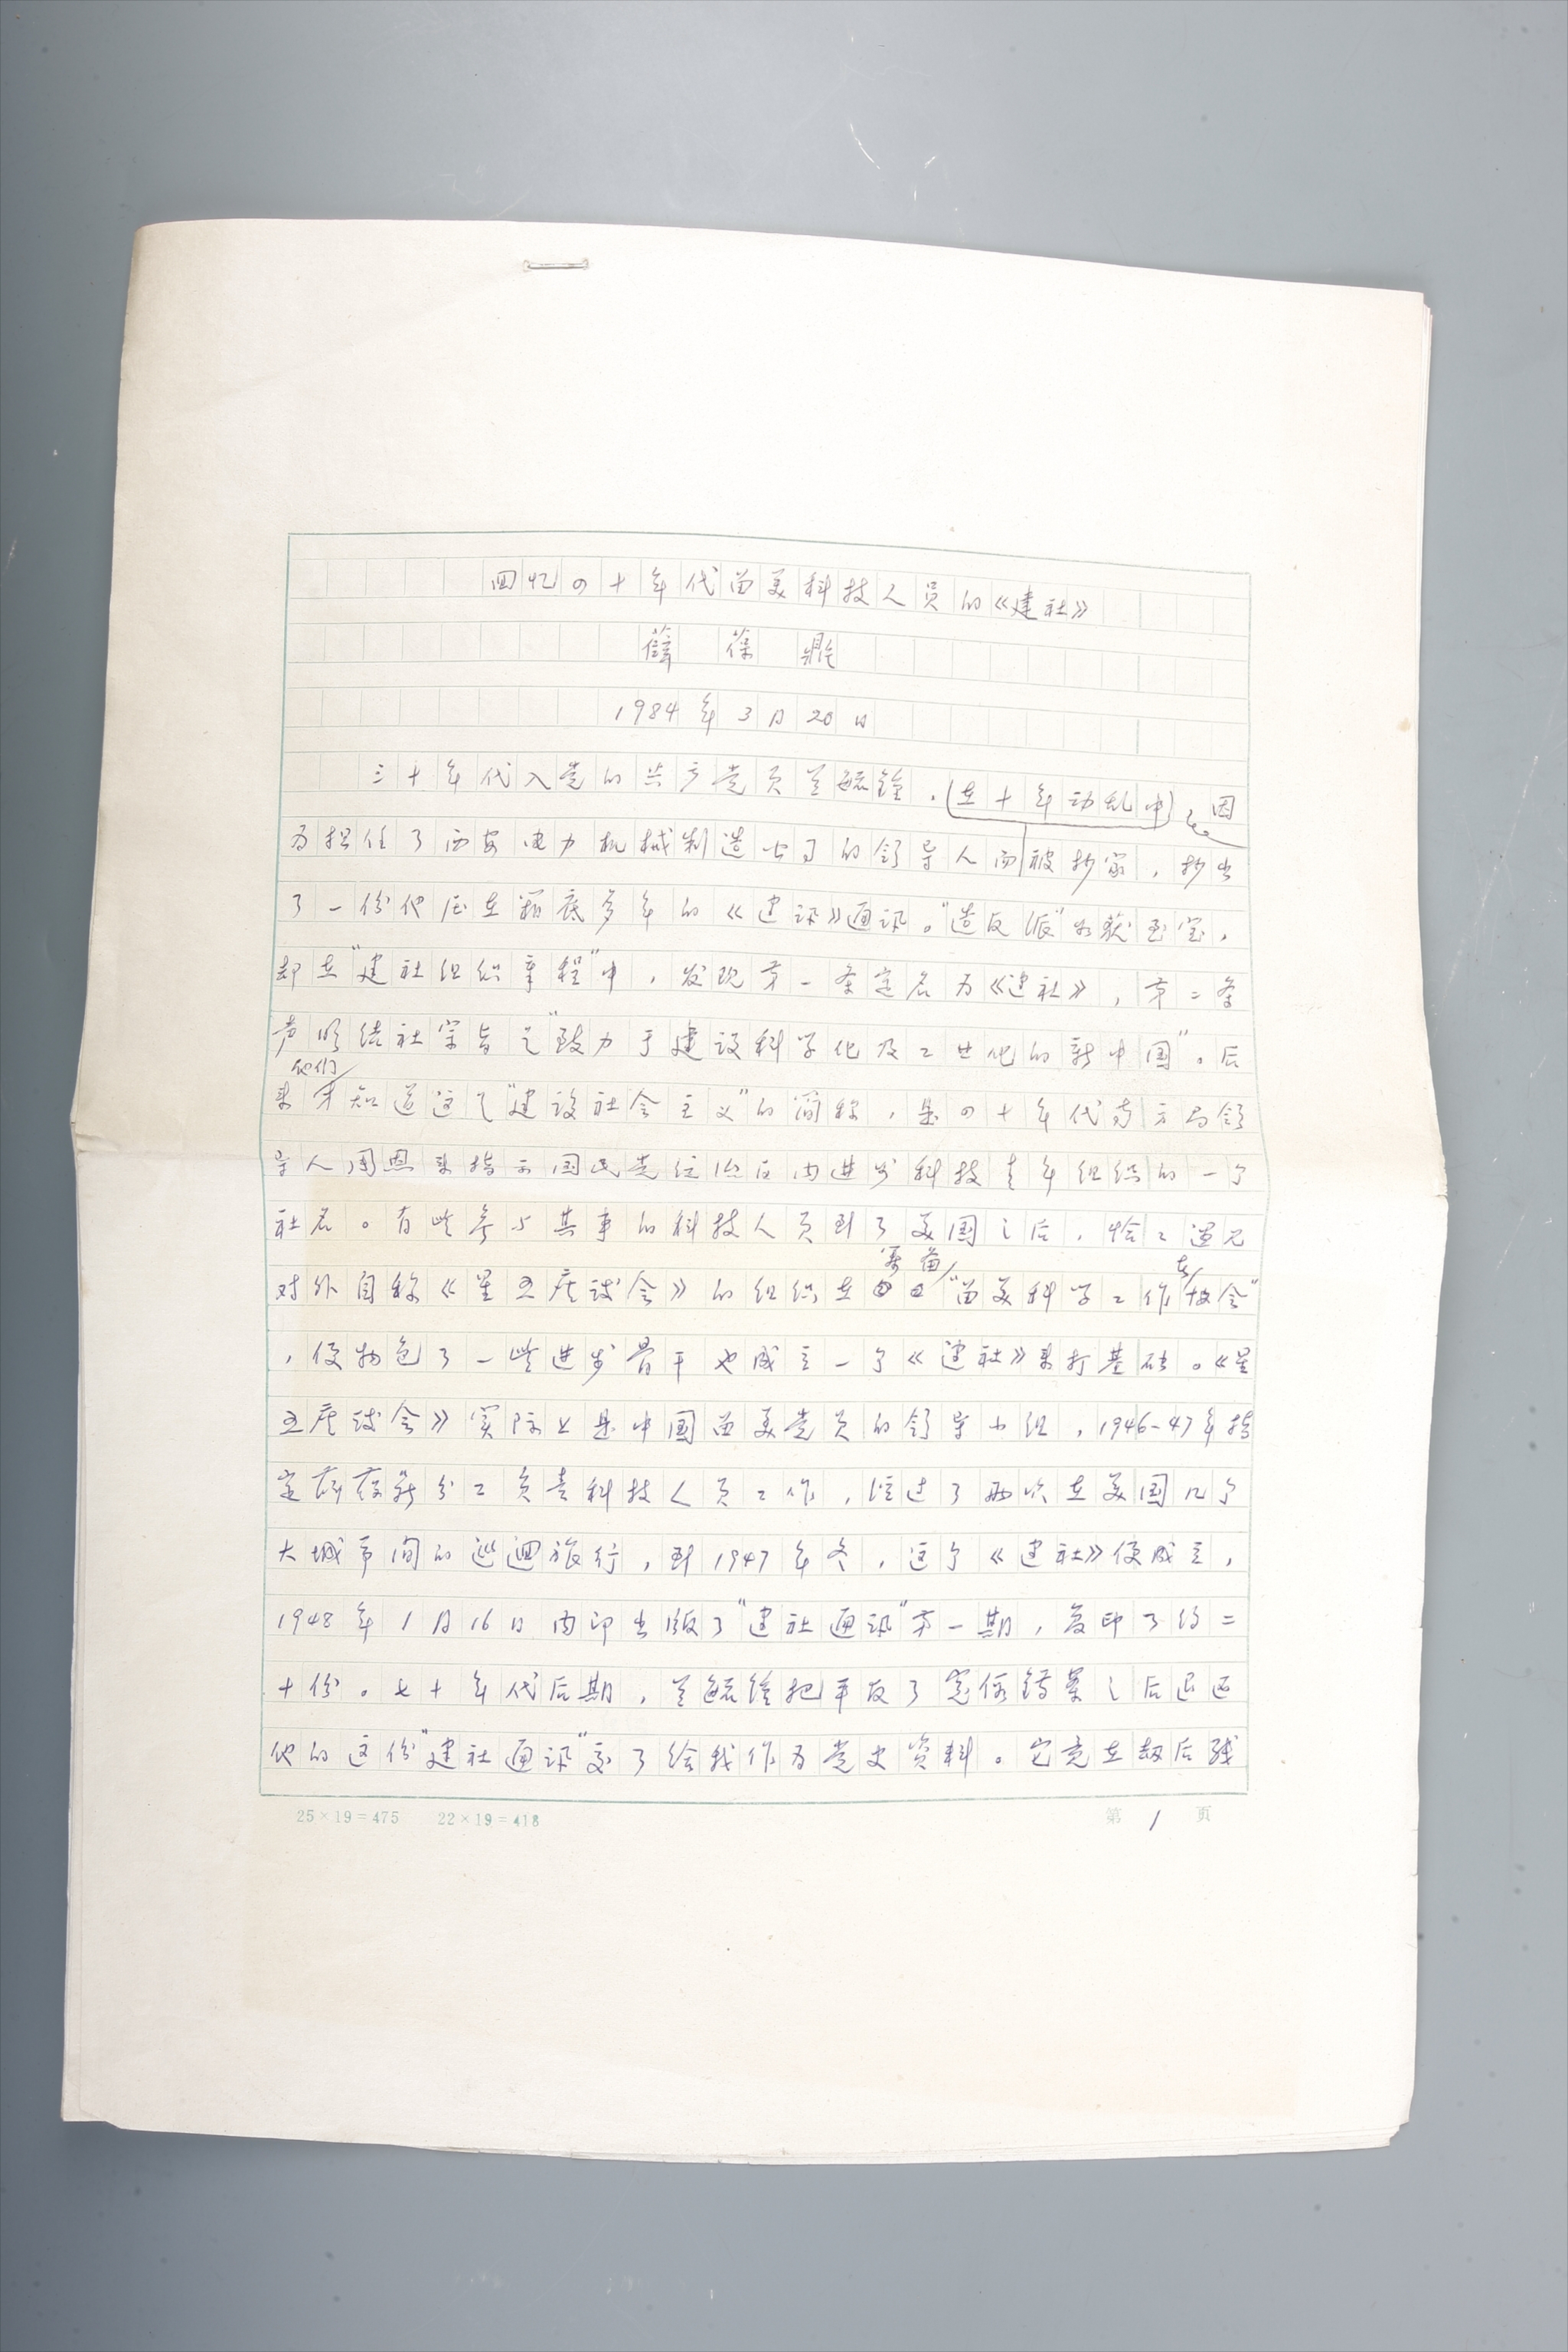 回忆四十年代留美科技人员的《建社》
薛葆鼎
1984年3月20日
三十年代入党的共产党员兰毓鍾,(在十年动乱中)因
为担任了西安电力机械制造公司的领导人而被抄家,抄出
了一份他压在箱底多年的《建讯》通讯。“造反派”如获至宝,
却在“建社组织章程”中,发现第一条定名为《建社》,第二条
声明结社宗旨是“致力于建设科学化及工业化的新中国”。后
来他们才知道这是“建设社会主义”的简称,是四十年代南方局领
导人周恩来指示国民党统治区内进步科技青年组织的一个
社名。有些参与其事的科技人员到了美国之后,恰恰遇见
对外自称《星五座谈会》的组织在筹备“留美科学工作者协会”
,便物色了一些进步骨干也成立一个《建社》来打基础。《星
五座谈会》实际上是中国留美党员的领导小组,1946-47年指
定薛葆鼎分工负责科技人员工作,经过了两次在美国几个
大城市间的巡迴旅行,到1947年冬,这个《建社》便成立,
1948年1月16日内即出版了“建社通讯”第一期,复印了约二
十份。七十年代后期,兰毓鍾把平反了冤假错案之后退还
他的这份“建社通讯”交了给我作为党史资料。它竟在劫后残
25×19=475 22×19=418 第1页